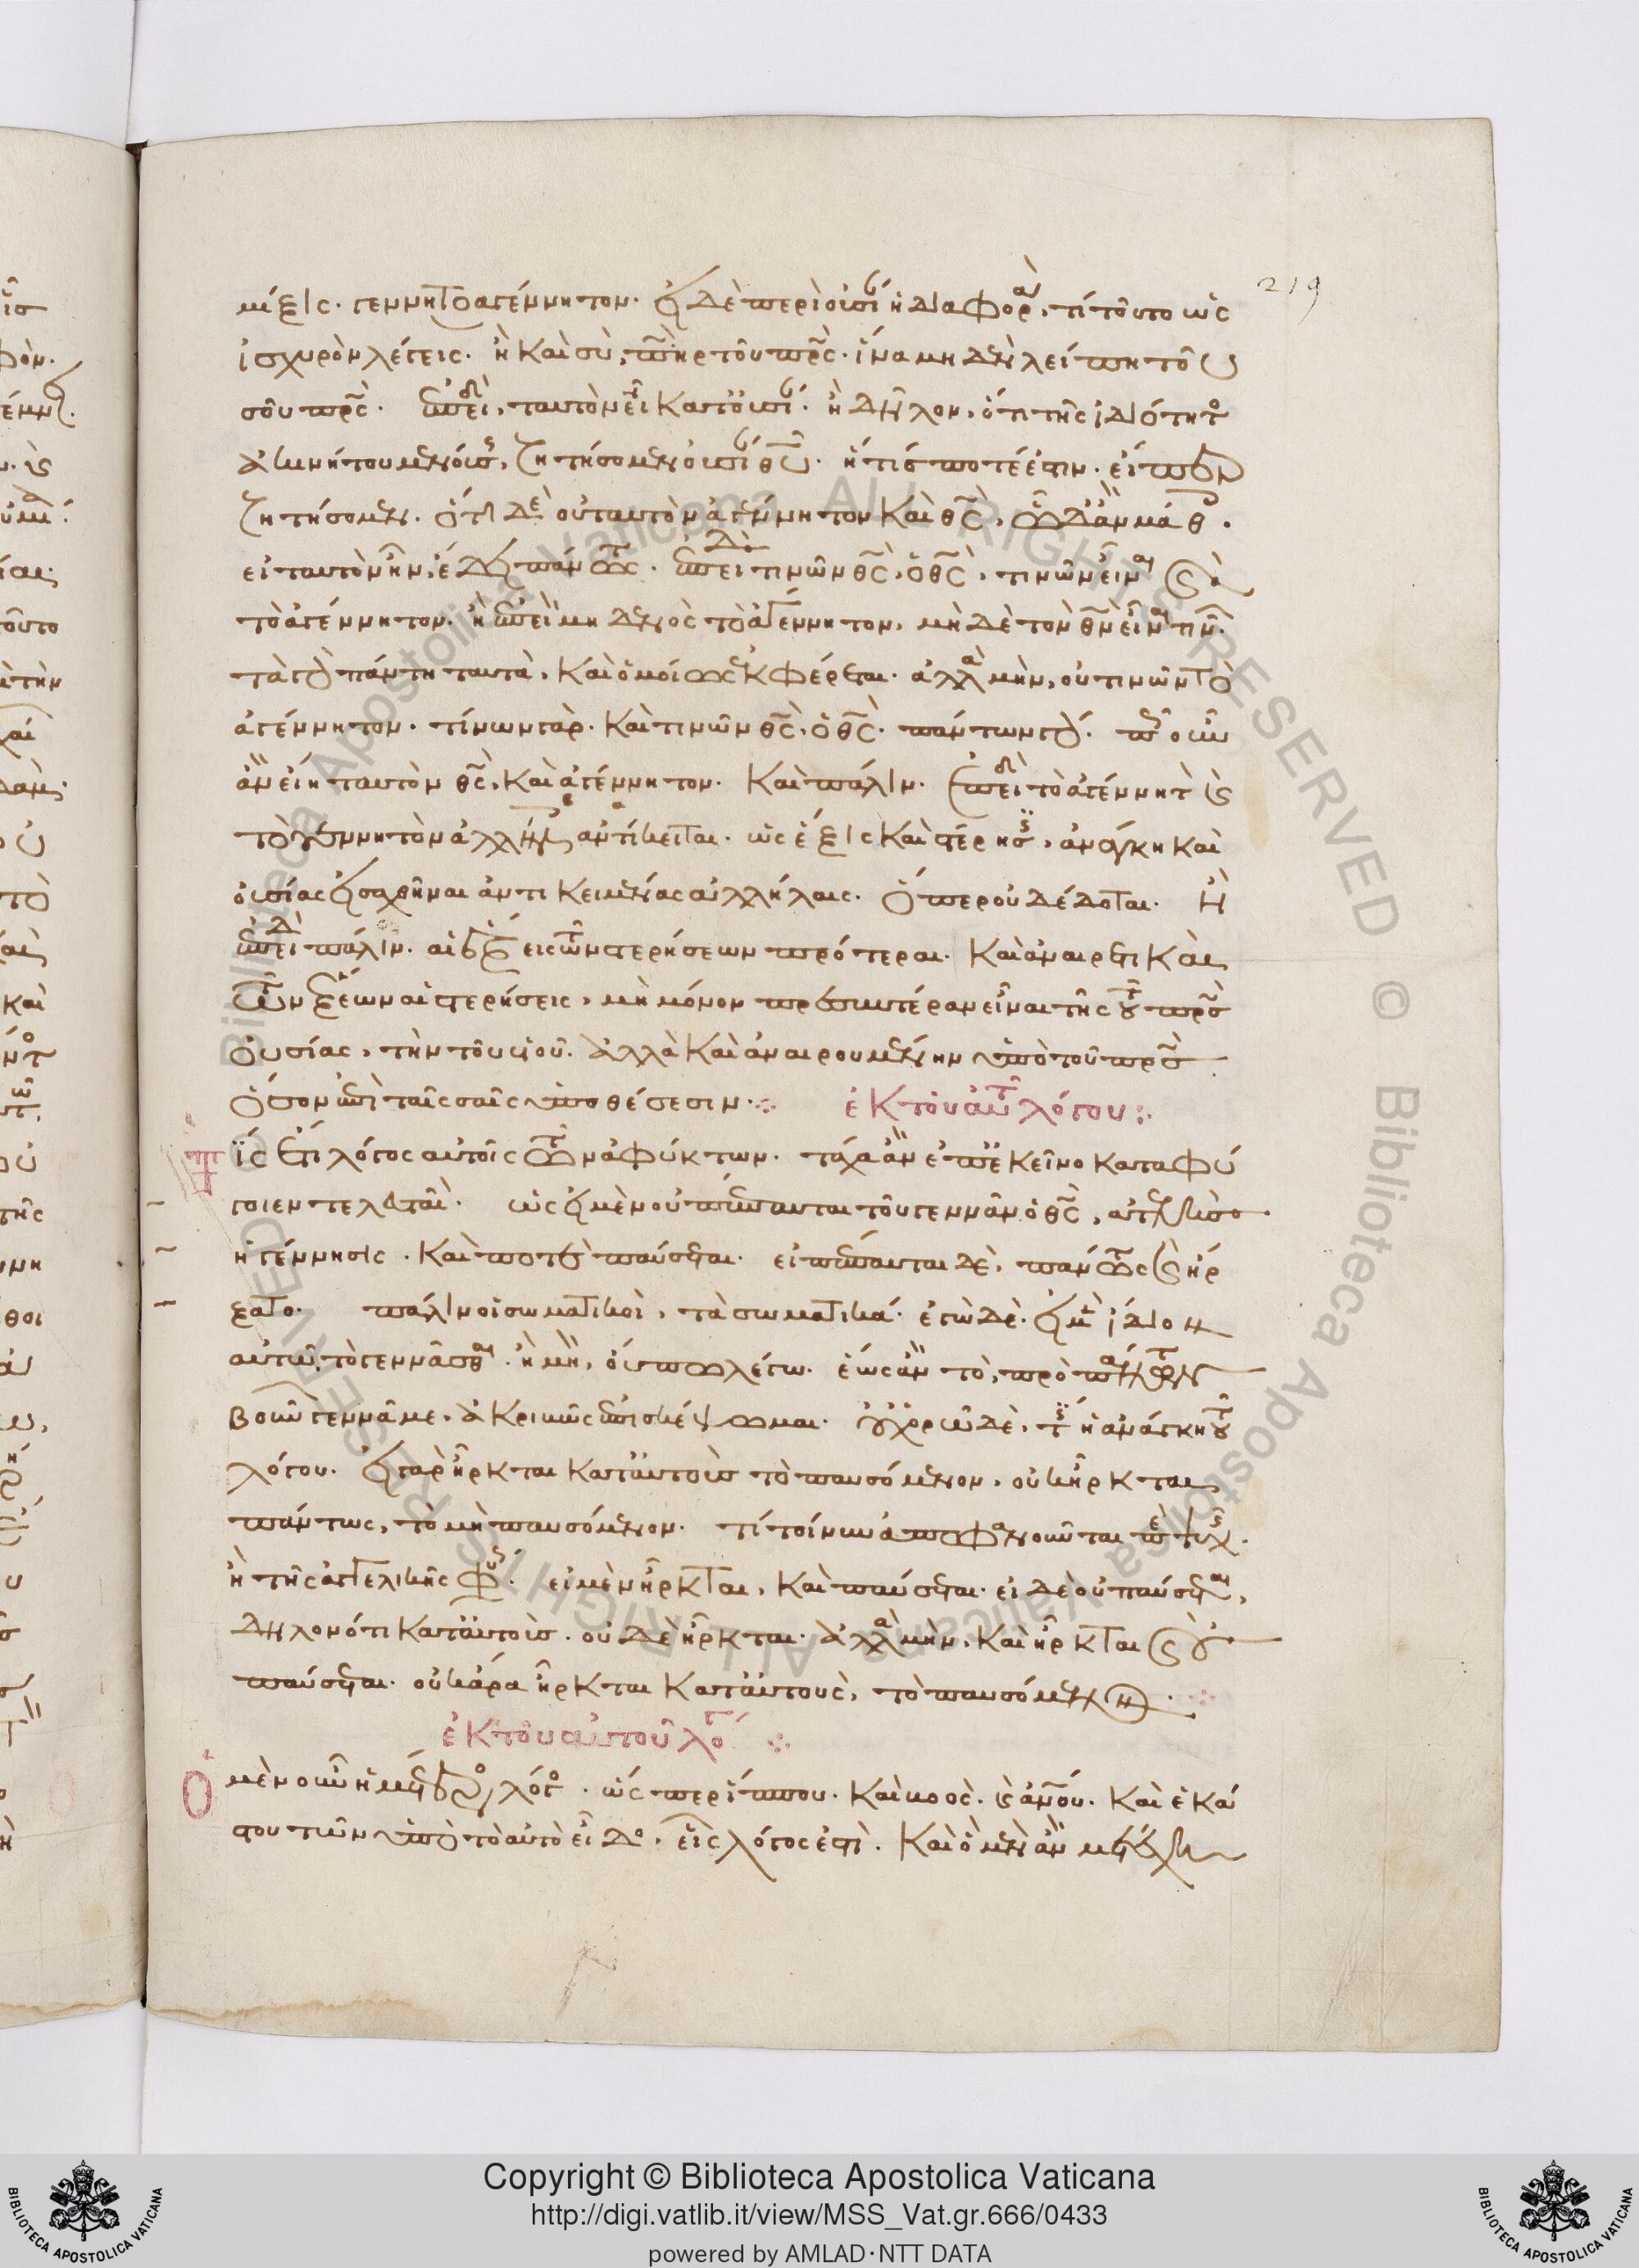 219
μίξις. γεννητοῦ ἀγέννητον. εἰ δὲ περὶ οὐσίαν ἡ διαφορά, τί τοῦτο ὡς
ἰσχυρὸν λέγεις. ἢ καὶ σὺ, πατὴρ τοῦ πατρός. ἵνα μηδὲν λείπῃ τοῦ
σοῦ πατρός. ἐπειδὴ, ταυτὸν εἶ κατ' οὐσίαν. ἢ δῆλον, ὅτι τῆς ἰδιότητος
ἀκινήτου μενούσης, ζητήσομεν οὐσίαν θεοῦ. ἥτις ποτέ ἐστιν. εἴπερ
ζητήσομεν. ὅτι δὲ οὐ ταυτὸν ἀγέννητον καὶ θεὸς, ὧδε ἂν μάθοις.
εἰ ταυτὸν ἦν, ἔδει πάντως. ἐπειδὴ τινῶν θεὸς, ὁ θεὸς, τινῶν εἶναι καὶ
τὸ ἀγέννητον. ἢ ἐπεὶ μηδενὸς τὸ ἀγέννητον, μηδὲ τὸν θεὸν εἶναι τινῶν.
τὰ γὰρ πάντη ταυτὰ, καὶ ὁμοίως ἐκφέρεται. ἀλλὰ μὴν, οὐ τινῶν τὸ
ἀγέννητον. τίνων γάρ. καὶ τινῶν θεὸς, ὁ θεὸς. πάντων γάρ. πῶς οὖν
ἂν εἴη ταυτὸν θεὸς, καὶ ἀγέννητον. καὶ πάλιν. ἐπειδὴ τὸ ἀγέννητον καὶ
τὸ γεννητὸν ἀλλήλοις ἀντίκειται. ὡς ἕξις καὶ στέρησις, ἀνάγκη καὶ
οὐσίας εἰσαχθῆναι ἀντικειμένας ἀλλήλαις. ὅπερ οὐ δέδοται. ἢ
ἐπειδὴ πάλιν. αἱ ἕξεις τῶν στερήσεων πρότεραι. καὶ ἀναιρετικαὶ
τῶν ἕξεων αἱ στερήσεις, μὴ μόνον πρεσβυτέραν εἶναι τῆς τοῦ πατρὸς
οὐσίας, τὴν τοῦ υἱοῦ. ἀλλὰ καὶ ἀναιρουμένην ὑπὸ τοῦ πατρὸς
ὅσον ἐπὶ ταῖς σαῖς ὑποθέσεσιν. ἐκ τοῦ αὐτοῦ λόγου:
Τίς ἔτι λόγος αὐτοῖς τῶν ἀφύκτων. τάχα ἂν ἐπ' ἐκεῖνο καταφύ
γοιεν τελευταῖον. ὡς εἰ μὲν οὐ πέπαυται τοῦ γεννᾶν ὁ θεὸς, ἀτελὴς
ἡ γέννησις. καὶ ποτὲ παύσεται. εἰ πέπαυται δὲ, πάντως καὶ ἤρ
ξατο. πάλιν οἱ σωματικοὶ, τὰ σωματικά. ἐγὼ δὲ. εἰ μὲν ἀίδιον
αὐτῷ τὸ γεννᾶσθαι. ἢ μὴ, οὔπω λέγω. ἕως ἂν τὸ, πρὸ πάντων
βουνῶν γεννᾷ με, ἀκριβῶς ἐπισκέψωμαι. οὐχ ὁρῶ δὲ, τίς ἡ ἀνάγκη τοῦ
λόγου. εἰ γὰρ ἦρκται κατ' αὐτοὺς τὸ παυσόμενον, οὐκ ἦρκται
πάντως, τὸ μὴ παυσόμενον. τί τοίνυν ἀποφανοῦνται περὶ ψυχῆς.
ἢ τῆς ἀγγελικῆς φύσεως. εἰ μὲν ἦρκται, καὶ παύσεται. εἰ δὲ οὐ παύσεται,
δηλονότι κατ' αὐτοὺς. οὐδὲ ἦρκται. ἀλλὰ μὴν, καὶ ἦρκται καὶ οὐ
παύσεται. οὐκ ἄρα ἦρκται κατ' αὐτοὺς, τὸ παυσόμενον.
ἐκ τοῦ αὐτοῦ λόγου
Ὁ μὲν οὖν ἡμέτερος λόγος. ὡς περ ἵππου. καὶ βοὸς. καὶ ἀνθρώπου. καὶ ἑκά
στου τῶν ὑπὸ τὸ αὐτὸ εἶδος, εἷς λόγος ἐστὶ. καὶ ὃ μὲν ἂν μετέχῃ
Copyright © Biblioteca Apostolica Vaticana
http://digi.vatlib.it/view/MSS_Vat.gr.666/0433
powered by AMLAD·NTT DATA